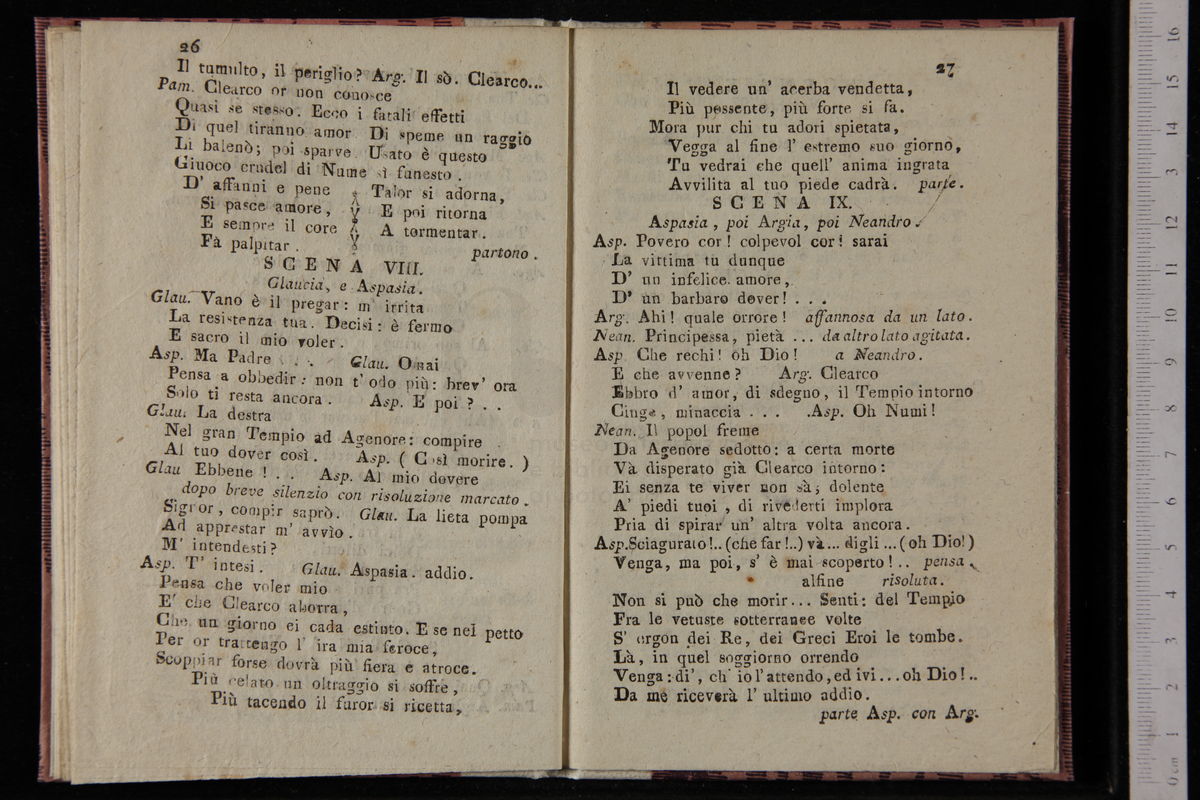 26
Il tumulto, il periglio? Arg. Il sò. Clearco...
Pam. Clearco or non conosce
Quasi se stesso. Ecco i fatali effetti
Di quel tiranno amor Di speme un raggio
Li balenò; poi sparve Usato è questo
Giuoco crudel di Nume sì funesto.
D' affanni e pene
Si pasce amore,
E sempre il core
Fà palpitar.
Talor si adorna,
E poi ritorna
A tormentar.
partono.
SCENA VIII.
Glaucia, e Aspasia.
Glau. Vano è il pregar: m' irrita
La resistenza tua. Decisi: è fermo
E sacro il mio voler.
Asp. Ma Padre . . . Glau. Omai
Pensa a obbedir: non t' odo più: brev' ora
Solo ti resta ancora. Asp. E poi? . .
Glau. La destra
Nel gran Tempio ad Agenore: compire
Al tuo dover così. Asp. ( Così morire. )
Glau Ebbene! . . Asp. Al mio dovere
dopo breve silenzio con risoluzione marcato.
Signor, compir saprò. Glau. La lieta pompa
Ad apprestar m' avvìo.
M' intendesti?
Asp. T' intesi. Glau. Aspasia. addio.
Pensa che voler mio
E' che Clearco aborra,
Che un giorno ei cada estinto. E se nel petto
Per or trattengo l' ira mia feroce,
Scoppiar forse dovrà più fiera e atroce.
Più celato un oltraggio si soffre,
Più tacendo il furor si ricetta,
27
Il vedere un' acerba vendetta,
Più possente, più forte si fa.
Mora pur chi tu adori spietata,
Vegga al fine l' estremo suo giorno,
Tu vedrai che quell' anima ingrata
Avvilita al tuo piede cadrà. parte.
SCENA IX.
Aspasia, poi Argia, poi Neandro.
Asp. Povero cor! colpevol cor! sarai
La vittima tu dunque
D' un infelice amore,
D' un barbaro dover! . . .
Arg. Ahi! quale orrore! affannosa da un lato.
Nean. Principessa, pietà ... da altro lato agitata.
Asp. Che rechi! oh Dio! a Neandro.
E che avvenne? Arg. Clearco
Ebbro d' amor, di sdegno, il Tempio intorno
Cinge, minaccia . . . .Asp. Oh Numi!
Nean. Il popol freme
Da Agenore sedotto: a certa morte
Và disperato già Clearco intorno:
Ei senza te viver non sà; dolente
A' piedi tuoi, di rivederti implora
Pria di spirar un' altra volta ancora.
Asp. Sciagurato!.. (che far!..) và... digli ... (oh Dio!)
Venga, ma poi, s' è mai scoperto!.. pensa,
alfine risoluta.
Non si può che morir... Senti: del Tempio
Fra le vetuste sotterranee volte
S' ergon dei Re, dei Greci Eroi le tombe.
Là, in quel soggiorno orrendo
Venga: di', ch' io l' attendo, ed ivi... oh Dio!..
Da me riceverà l' ultimo addio.
parte Asp. con Arg.
0 cm 1 2 3 4 5 6 7 8 9 10 11 12 13 14 15 16